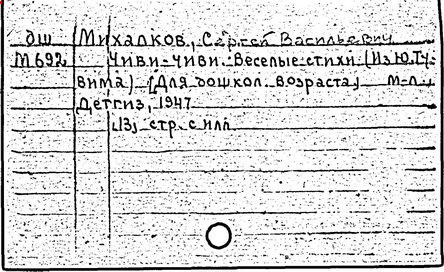 дш Михалков, Сергей Васильевич
М692 Чиви-чиви. Веселые стихи (Из Ю. Ту-
вима) [Для дошкол. возраста] М-Л.,
Детгиз, 1947
[13] стр. с илл.